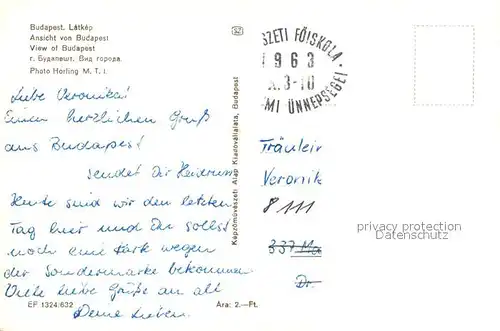 Budapest. Látkép
Ansicht von Budapest
View of Budapest
г. Будапешт. Вид города.
Photo Herling M. T. I.
Liebe Veronika!
Einen herzlichen Gruß
aus Budapest
sendet Dir Heidrun
Heute sind wir den letzten
Tag hier und Du sollst
noch eine Kark wegen
der Sondermarke bekommen
Viele liebe Grüße an all
Deine Lieben.
EP 1324/632
Ára: 2.—Ft.
Képzőművészeti Alap Kiadóvállalata, Budapest
SZETI FŐISKOLA ·
1963
X. 3-10
MI ÜNNEPSÉGEI
Fräulein
Veronik
8111
privacy protection
Datenschutz
337 Ma
Dr.